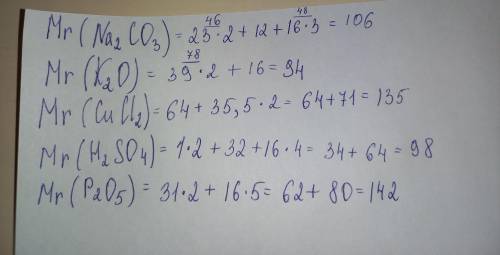 Mr(Na₂CO₃) = 23·2 + 12 + 16·3 = 106 46 48
Mr(K₂O) = 39·2 + 16 = 94 78
Mr(CuCl₂) = 64 + 35,5·2 = 64+71 = 135
Mr(H₂SO₄) = 1·2 + 32 + 16·4 = 34 + 64 = 98
Mr(P₂O₅) = 31·2 + 16·5 = 62 + 80 = 142